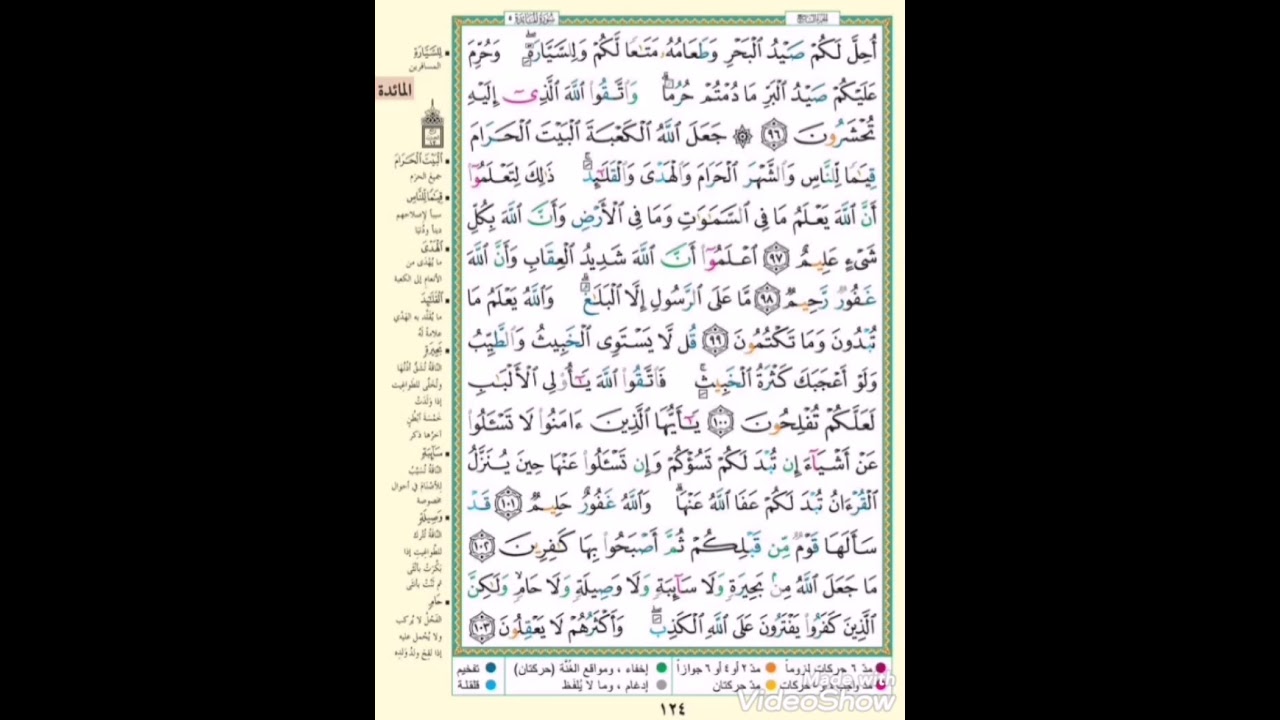 سُورَةُ المَائِدَة ٥
الجزء السابع
أُحِلَّ لَكُمْ صَيْدُ ٱلْبَحْرِ وَطَعَامُهُۥ مَتَـٰعًا لَّكُمْ وَلِلسَّيَّارَةِ ۖ وَحُرِّمَ
عَلَيْكُمْ صَيْدُ ٱلْبَرِّ مَا دُمْتُمْ حُرُمًا ۗ وَٱتَّقُوا۟ ٱللَّهَ ٱلَّذِىٓ إِلَيْهِ
تُحْشَرُونَ ٩٦ ۞ جَعَلَ ٱللَّهُ ٱلْكَعْبَةَ ٱلْبَيْتَ ٱلْحَرَامَ
قِيَـٰمًا لِّلنَّاسِ وَٱلشَّهْرَ ٱلْحَرَامَ وَٱلْهَدْىَ وَٱلْقَلَـٰٓئِدَ ۚ ذَٰلِكَ لِتَعْلَمُوٓا۟
أَنَّ ٱللَّهَ يَعْلَمُ مَا فِى ٱلسَّمَـٰوَٰتِ وَمَا فِى ٱلْأَرْضِ وَأَنَّ ٱللَّهَ بِكُلِّ
شَىْءٍ عَلِيمٌ ٩٧ ٱعْلَمُوٓا۟ أَنَّ ٱللَّهَ شَدِيدُ ٱلْعِقَابِ وَأَنَّ ٱللَّهَ
غَفُورٌ رَّحِيمٌ ٩٨ مَّا عَلَى ٱلرَّسُولِ إِلَّا ٱلْبَلَـٰغُ ۗ وَٱللَّهُ يَعْلَمُ مَا
تُبْدُونَ وَمَا تَكْتُمُونَ ٩٩ قُل لَّا يَسْتَوِى ٱلْخَبِيثُ وَٱلطَّيِّبُ
وَلَوْ أَعْجَبَكَ كَثْرَةُ ٱلْخَبِيثِ ۚ فَٱتَّقُوا۟ ٱللَّهَ يَـٰٓأُو۟لِى ٱلْأَلْبَـٰبِ
لَعَلَّكُمْ تُفْلِحُونَ ١٠٠ يَـٰٓأَيُّهَا ٱلَّذِينَ ءَامَنُوا۟ لَا تَسْـَٔلُوا۟
عَنْ أَشْيَآءَ إِن تُبْدَ لَكُمْ تَسُؤْكُمْ وَإِن تَسْـَٔلُوا۟ عَنْهَا حِينَ يُنَزَّلُ
ٱلْقُرْءَانُ تُبْدَ لَكُمْ عَفَا ٱللَّهُ عَنْهَا ۗ وَٱللَّهُ غَفُورٌ حَلِيمٌ ١٠١ قَدْ
سَأَلَهَا قَوْمٌ مِّن قَبْلِكُمْ ثُمَّ أَصْبَحُوا۟ بِهَا كَـٰفِرِينَ ١٠٢
مَا جَعَلَ ٱللَّهُ مِنۢ بَحِيرَةٍ وَلَا سَآئِبَةٍ وَلَا وَصِيلَةٍ وَلَا حَامٍ ۙ وَلَـٰكِنَّ
ٱلَّذِينَ كَفَرُوا۟ يَفْتَرُونَ عَلَى ٱللَّهِ ٱلْكَذِبَ ۖ وَأَكْثَرُهُمْ لَا يَعْقِلُونَ ١٠٣
لِلسَّيَّارَةِ
المسافرين
المائدة
ٱلْبَيْتَ ٱلْحَرَامَ
جميع الحرم
قِيَـٰمًا لِّلنَّاسِ
سبباً لإصلاحهم
ديناً ودُنيا
ٱلْهَدْىَ
ما يُهْدَى من
الأنعام إلى الكعبة
ٱلْقَلَـٰٓئِدَ
ما يُقَلَّد به الهَدْي
علامةً لَهُ
بَحِيرَةٍ
النَّاقة تُشَقُّ أُذُنُها
وتُخلَّى للطواغيت
إذا وَلَدَتْ
خَمْسَةَ أبْطُنٍ
آخرُها ذكر
سَآئِبَةٍ
النَّاقة تُسَيَّبُ
للأصنام في أحوال
مخصوصة
وَصِيلَةٍ
النَّاقة تُترك
للطواغيت إذا
بَكَّرَتْ بأنثى
ثم ثَنَّت بأنثى
حَامٍ
الفَحْلُ لا يُركب
ولا يُحْمل عليه
إذا لَقِحَ ولدُ وَلدِه
مدّ ٦ حركات لزوماً مدّ ٢ أو ٤ أو ٦ جوازاً إخفاء ، ومواقع الغُنَّة (حركتان) تفخيم
مدّ واجب ٤ أو ٥ حركات مدّ حركتان إدغام ، وما لا يُلفظ قلقلة
١٢٤
Made with
VideoShow